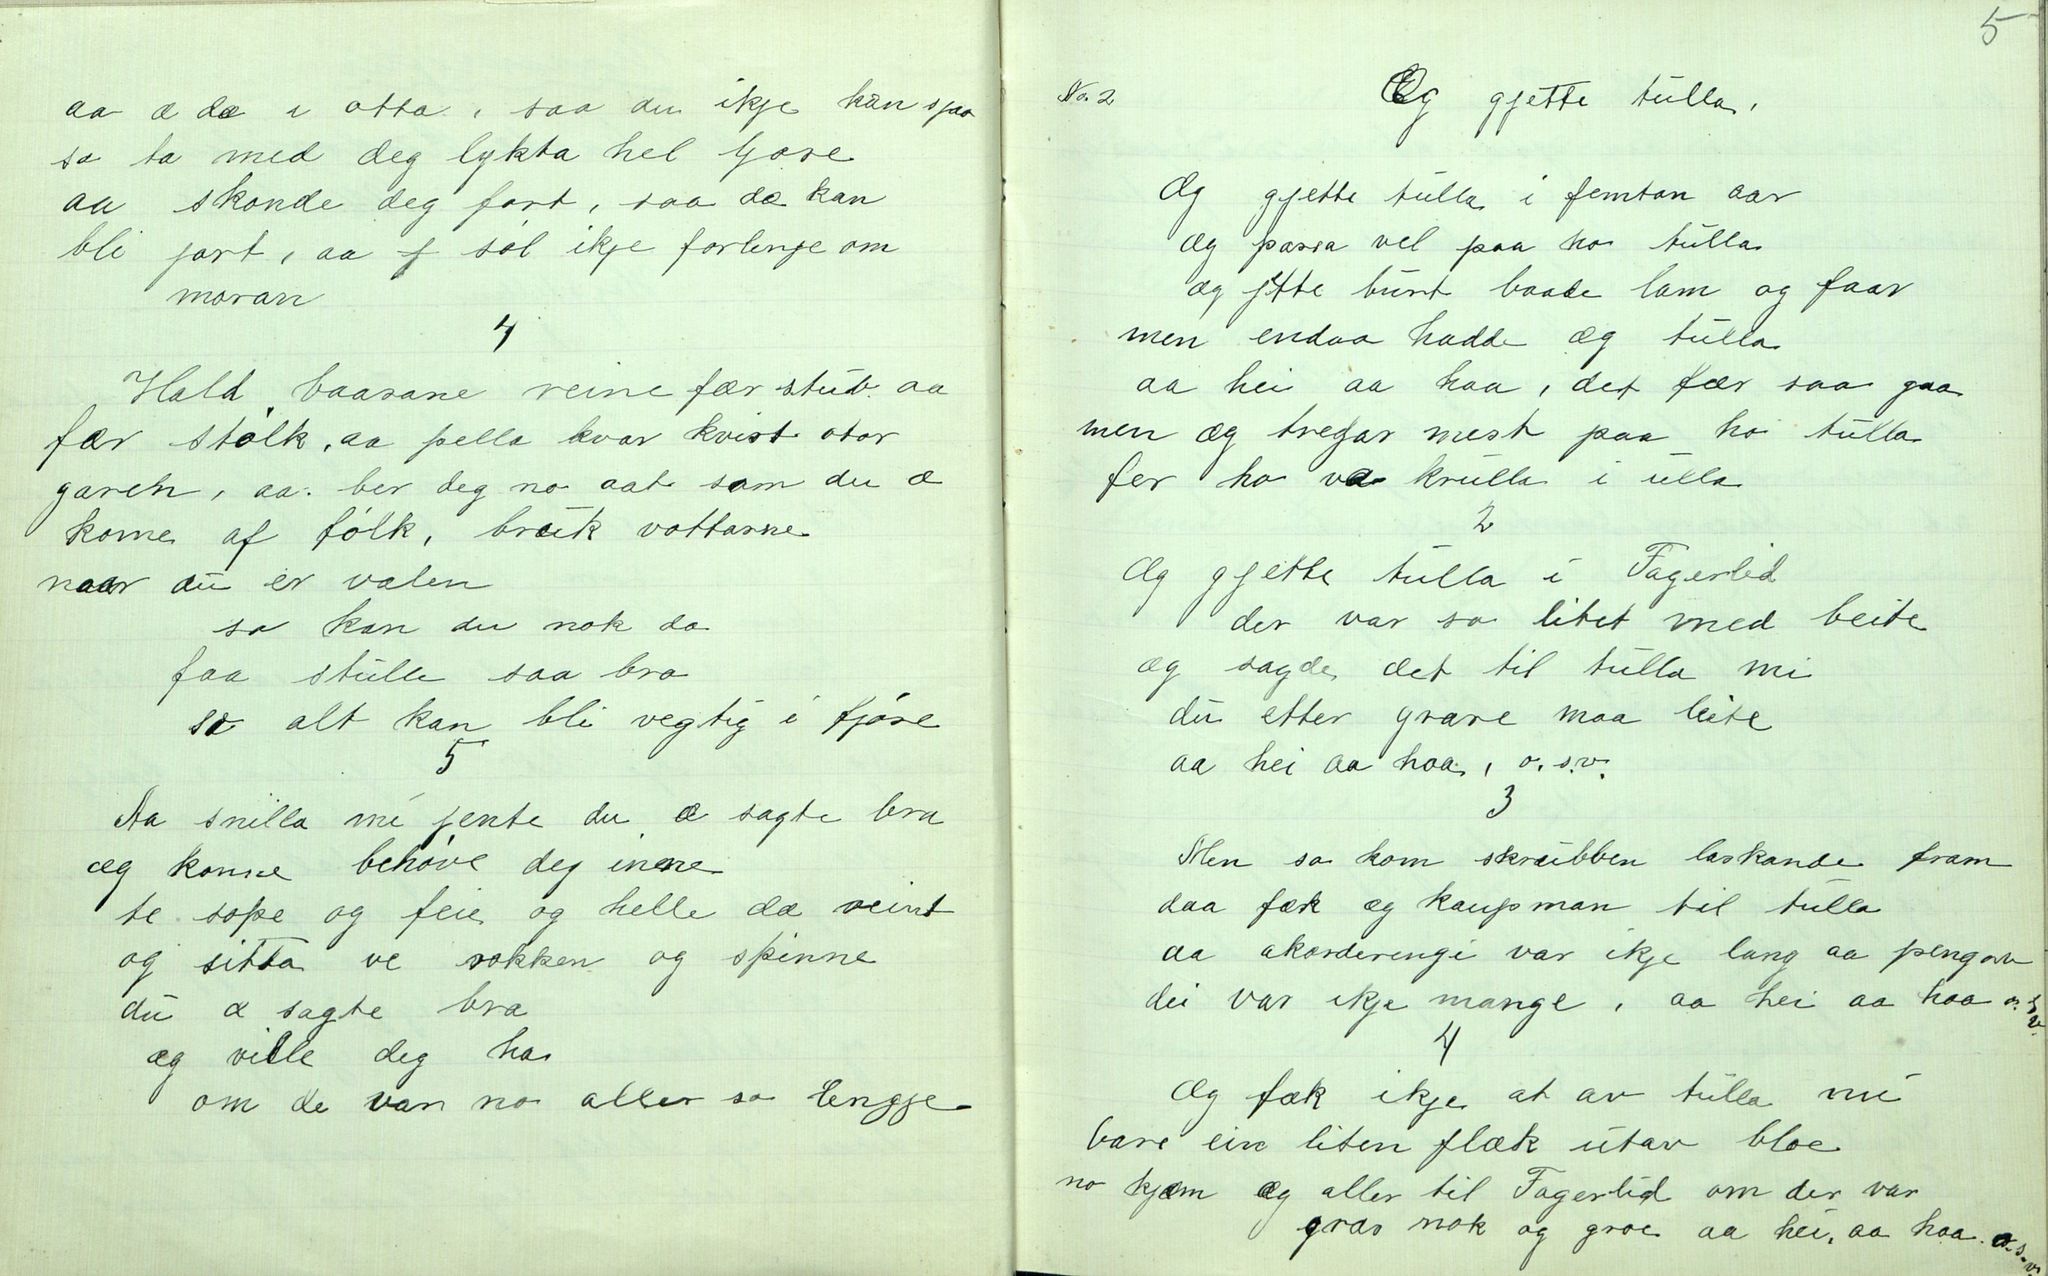 aa æ dæ i otta, saa du ikje kan sjaa
sa ta med deg lykta hel ljose
aa skonde deg fort, saa dæ kan
bli jort, aa f søl ikje forlenje om
moran
4
Hald baasane reine fær stub aa
fær stølk, aa pella kvar kvist otor
garen, aa ber deg no aat som du æ
kome af følk, bruk vottarne
naar du er valen
sa kan du nok da
faa stulle saa bra
sa alt kan bli vegtig i fjøse
5
Aa snilla mi jente du æ sagte bra
æg konne behøve deg inne
te sope og feie og helle dæ reint
og sitta ve rokken og spinne
du æ sagte bra
æg ville deg ha
om de var no aller so lengje
5
No. 2 Æg gjette tulla,
Æg gjette tulla i femtan aar
æg passa vel paa ho tulla
æg jtte burt baade lam og faar
men endaa hadde æg tulla
aa hei aa haa, det fær saa gaa
men æg tregar mest paa ho tulla
fer ho va krulla i ulla
2
Æg gjette tulla i Fagerlid
der var so litet med beite
æg sagde det til tulla mi
du etter grase maa leite
aa hei aa haa, o.s.v.
3
Men so kom skrubben laskande fram
daa fæk æg kaupman til tulla
aa akorderengi var ikje lang aa pengar
dei var ikje mange, aa hei aa haa o.s.v.
4
Æg fæk ikje at av tulla mi
bare ein liten flæk utav bloe
no kjæm æg aller til Fagerlid om der var
gras nok og groe aa hei, aa haa o.s.v.